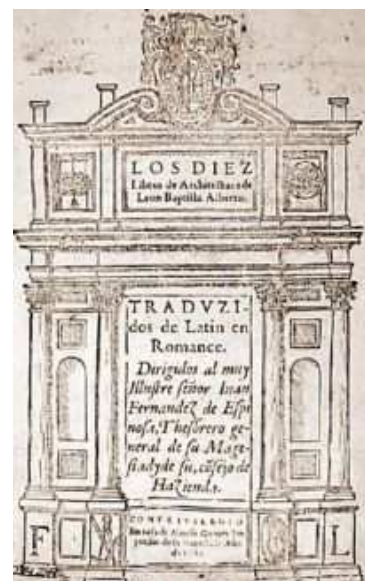 LOS DIEZ
Libros de Architectura de
Leon Baptista Alberto.
TRADVZI-
dos de Latin en
Romance.
Dirigidos al muy
Illustre señor Iuan
Fernandez de Espi
nosa, Thesorero ge-
neral de su Mage-
stad, y de su cõsejo de
Hazienda.
CON PRIVILEGIO
F
L